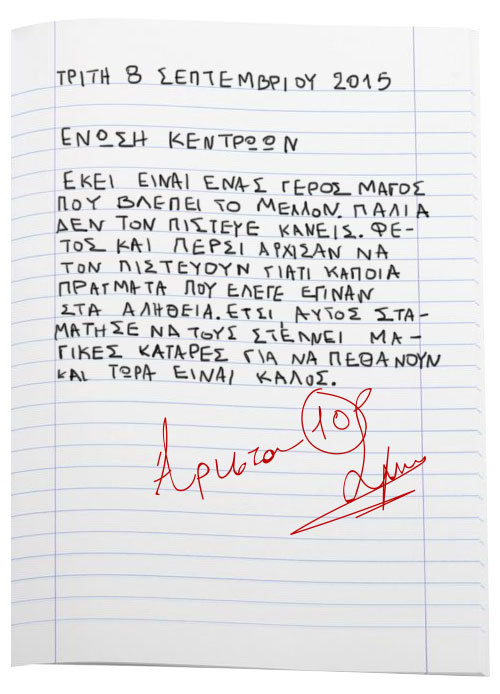 ΤΡΙΤΗ 8 ΣΕΠΤΕΜΒΡΙΟΥ 2015
ΕΝΩΣΗ ΚΕΝΤΡΩΩΝ
ΕΚΕΙ ΕΙΝΑΙ ΕΝΑΣ ΓΕΡΟΣ ΜΑΓΟΣ
ΠΟΥ ΒΛΕΠΕΙ ΤΟ ΜΕΛΛΟΝ. ΠΑΛΙΑ
ΔΕΝ ΤΟΝ ΠΙΣΤΕΥΕ ΚΑΝΕΙΣ. ΦΕ-
ΤΟΣ ΚΑΙ ΠΕΡΣΙ ΑΡΧΙΣΑΝ ΝΑ
ΤΟΝ ΠΙΣΤΕΥΟΥΝ ΓΙΑΤΙ ΚΑΠΟΙΑ
ΠΡΑΓΜΑΤΑ ΠΟΥ ΕΛΕΓΕ ΕΓΙΝΑΝ
ΣΤΑ ΑΛΗΘΕΙΑ. ΕΤΣΙ, ΑΥΤΟΣ ΣΤΑ-
ΜΑΤΗΣΕ ΝΑ ΤΟΥΣ ΣΤΕΛΝΕΙ ΜΑ-
ΓΙΚΕΣ ΚΑΤΑΡΕΣ ΓΙΑ ΝΑ ΠΕΘΑΝΟΥΝ
ΚΑΙ ΤΩΡΑ ΕΙΝΑΙ ΚΑΛΟΣ.
Άριστα 10